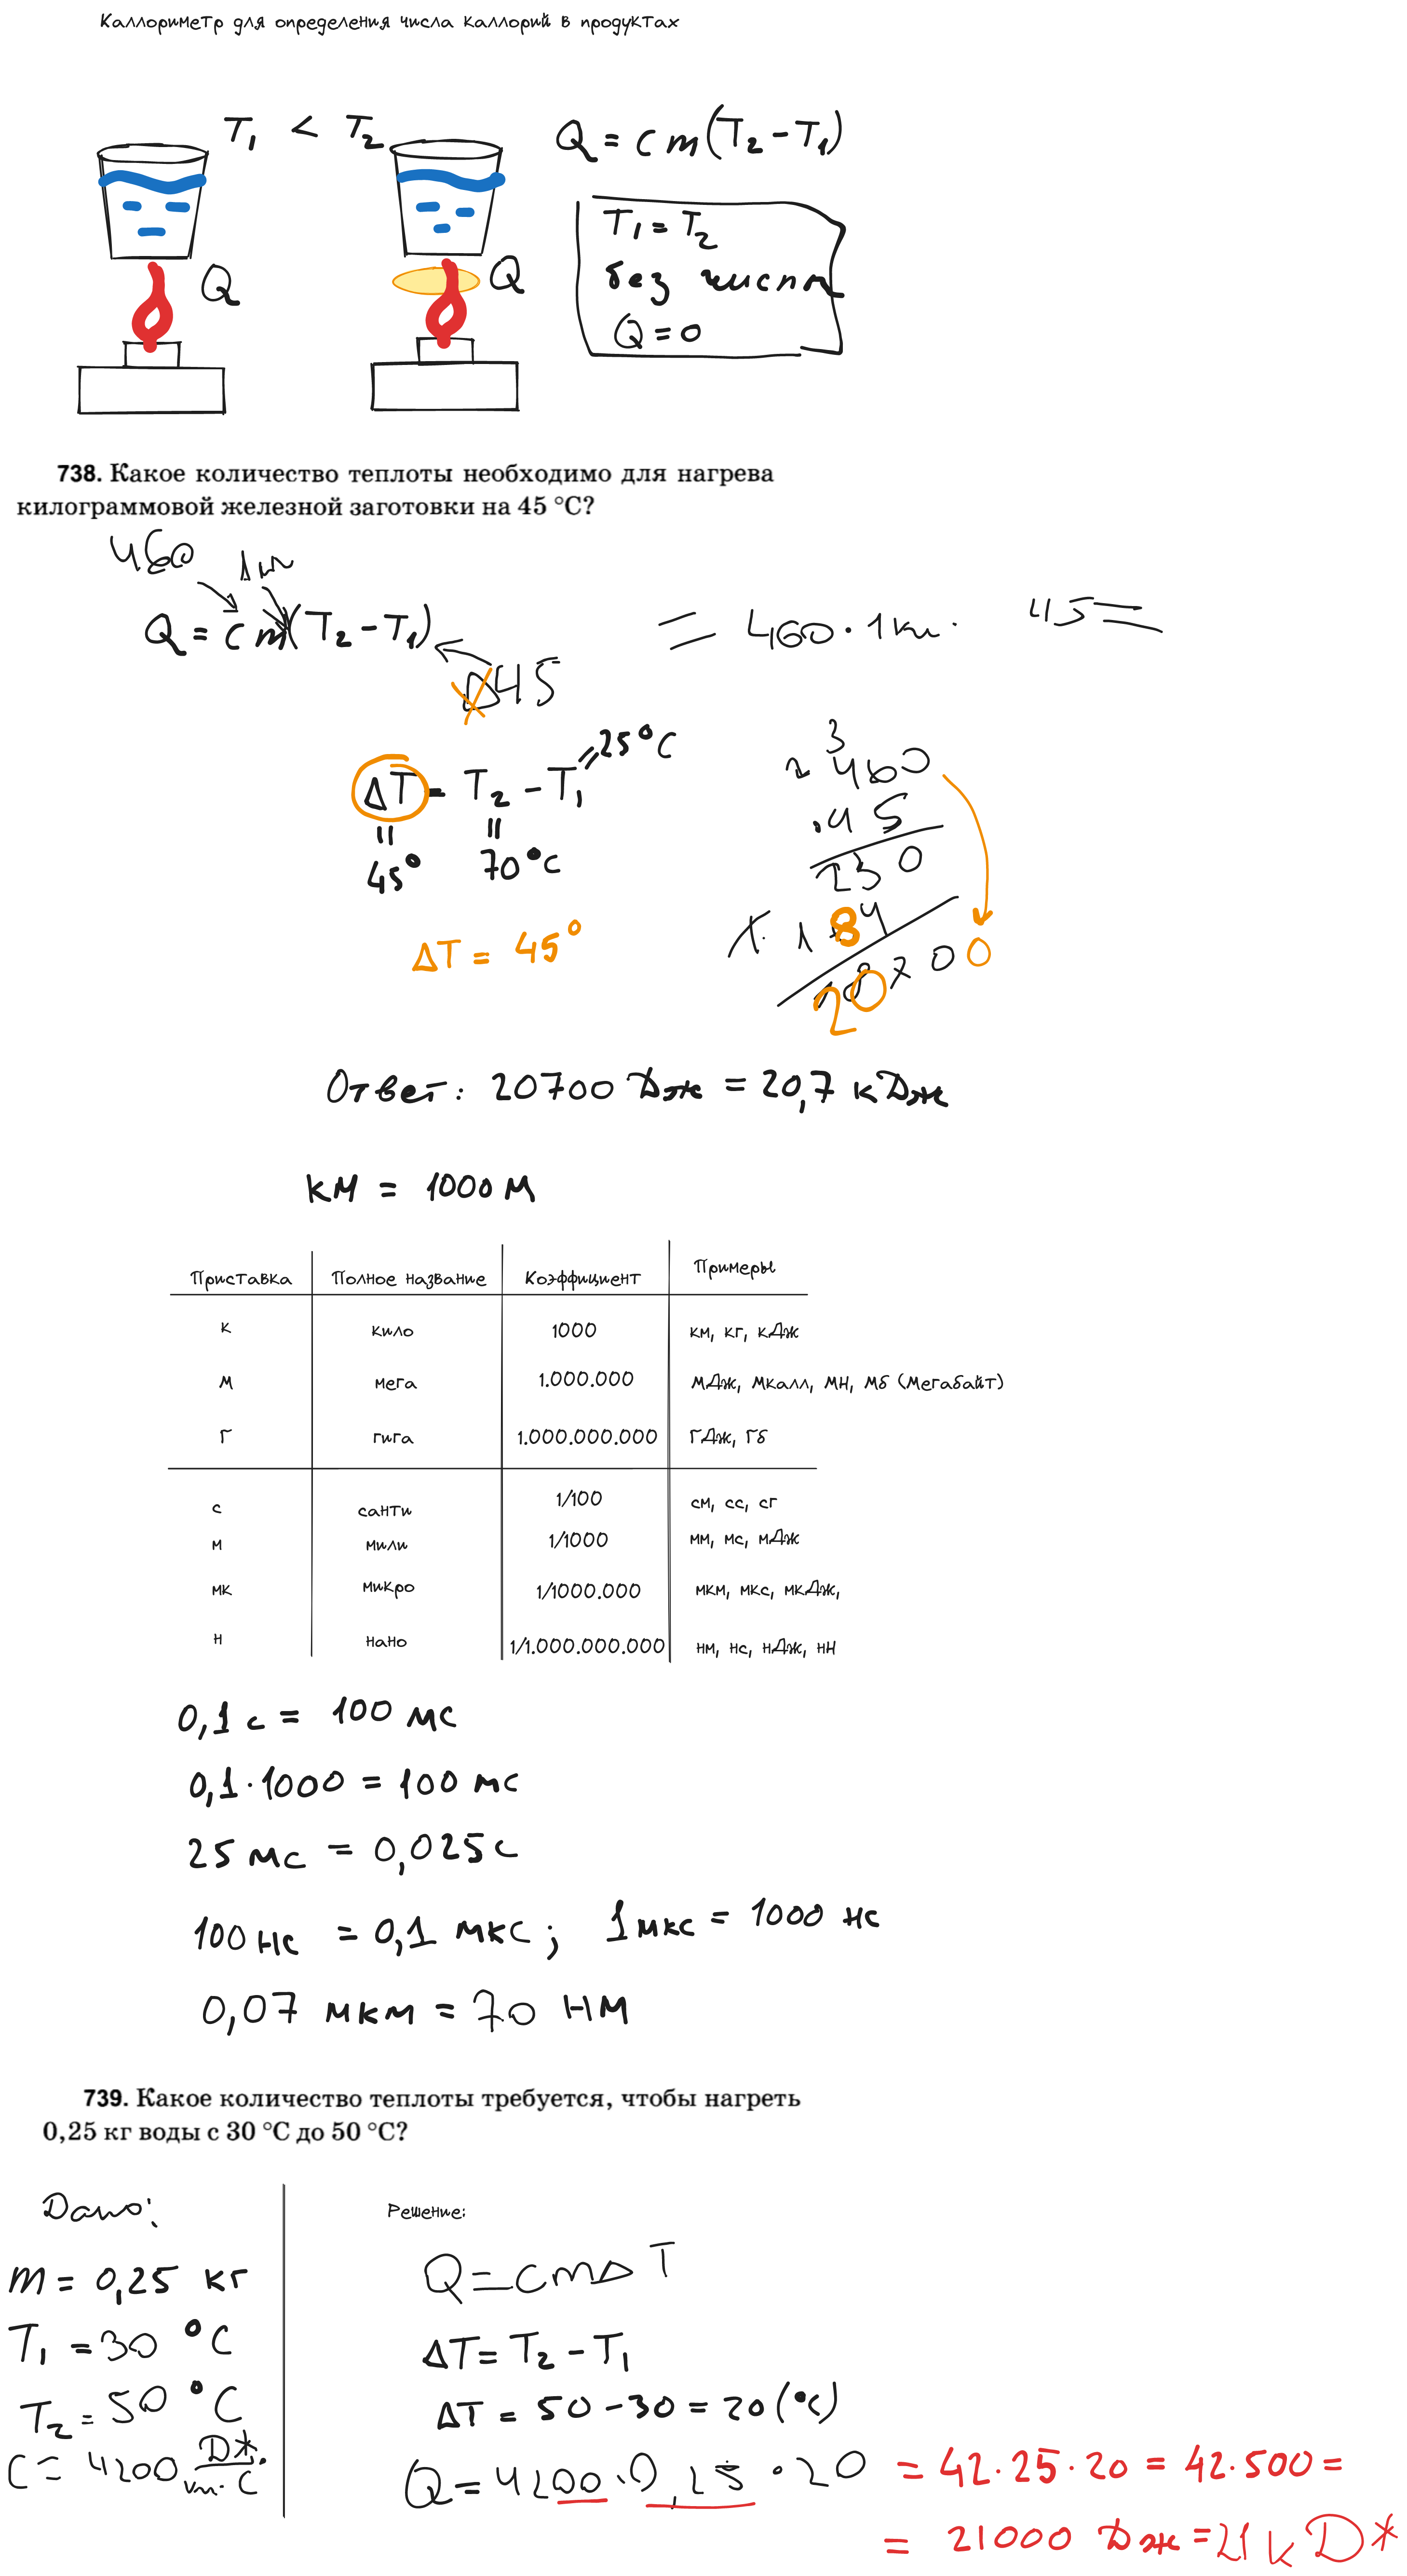 Каллориметр для определения числа каллорий в продуктах
T₁ < T₂
Q = cm(T₂ - T₁)
T₁ = T₂
без числа
Q = 0
Q
Q
738. Какое количество теплоты необходимо для нагрева
килограммовой железной заготовки на 45 °С?
460
Q = cm(T₂ - T₁)
= 460 · 1 кг · 45 =
45
ΔT = T₂ - T₁
25°C
45°
70°C
ΔT = 45°
3
2 460
· 45
230
184
20700
Ответ: 20700 Дж = 20,7 кДж
км = 1000 м
Приставка Полное название Коэффициент Примеры
к кило 1000 км, кг, кДж
М мега 1.000.000 МДж, Мкалл, МН, Мб (Мегабайт)
Г гига 1.000.000.000 ГДж, Гб
с санти 1/100 см, сс, сг
м мили 1/1000 мм, мс, мДж
мк микро 1/1000.000 мкм, мкс, мкДж,
н нано 1/1.000.000.000 нм, нс, нДж, нН
0,1 с = 100 мс
0,1 · 1000 = 100 мс
25 мс = 0,025 с
100 нс = 0,1 мкс ; 1 мкс = 1000 нс
0,07 мкм = 70 нм
739. Какое количество теплоты требуется, чтобы нагреть
0,25 кг воды с 30 °С до 50 °С?
Дано:
m = 0,25 кг
T₁ = 30 °C
T₂ = 50 °C
C = 4200 Дж/кг·C
Решение:
Q = cmΔT
ΔT = T₂ - T₁
ΔT = 50 - 30 = 20 (°C)
Q = 4200 · 0,25 · 20 = 42 · 25 · 20 = 42 · 500 =
= 21000 Дж = 21 кДж